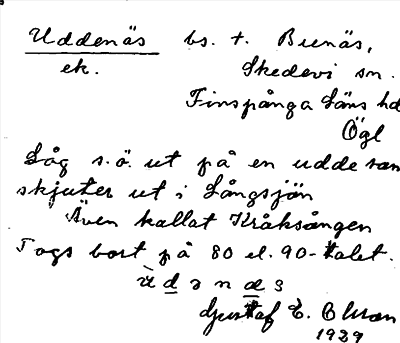 Uddenäs bs. t. Bunäs,
ek. Skedevi sn.
Finspånga läns hd
Ögl
Låg s.ö. ut på en udde som
skjuter ut i Långsjön
Även kallat Kråksången
Togs bort på 80 el. 90-talet.
Gustaf E.
1929